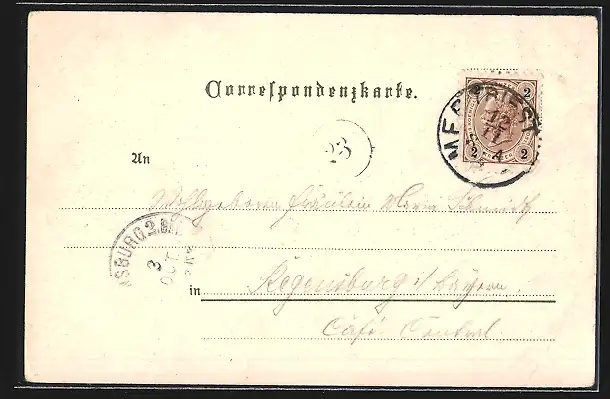 Correspondenzkarte.
2
TRIEST
2 2
23
An
Wohlgeboren Fräulein Maria Schmidt
SBURG 2.B
3
OCT.
in Regensburg i/ Bayern
Café Central.